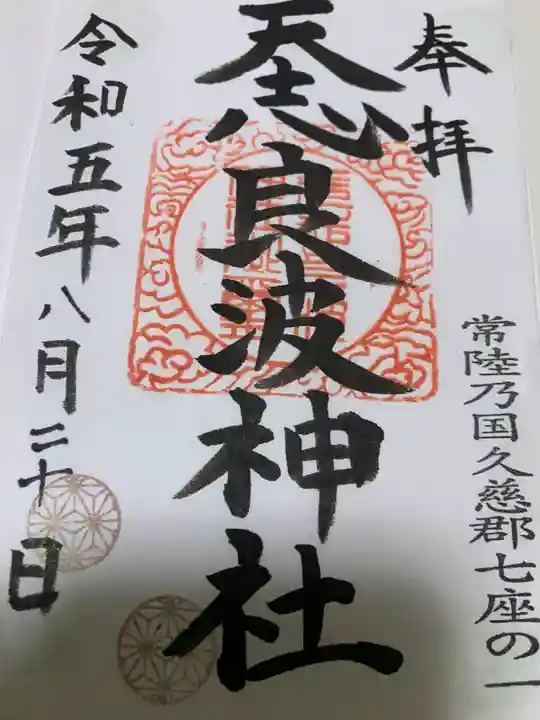 奉拝
常陸乃国久慈郡七座の一
天志良波神社
令和五年八月二十日